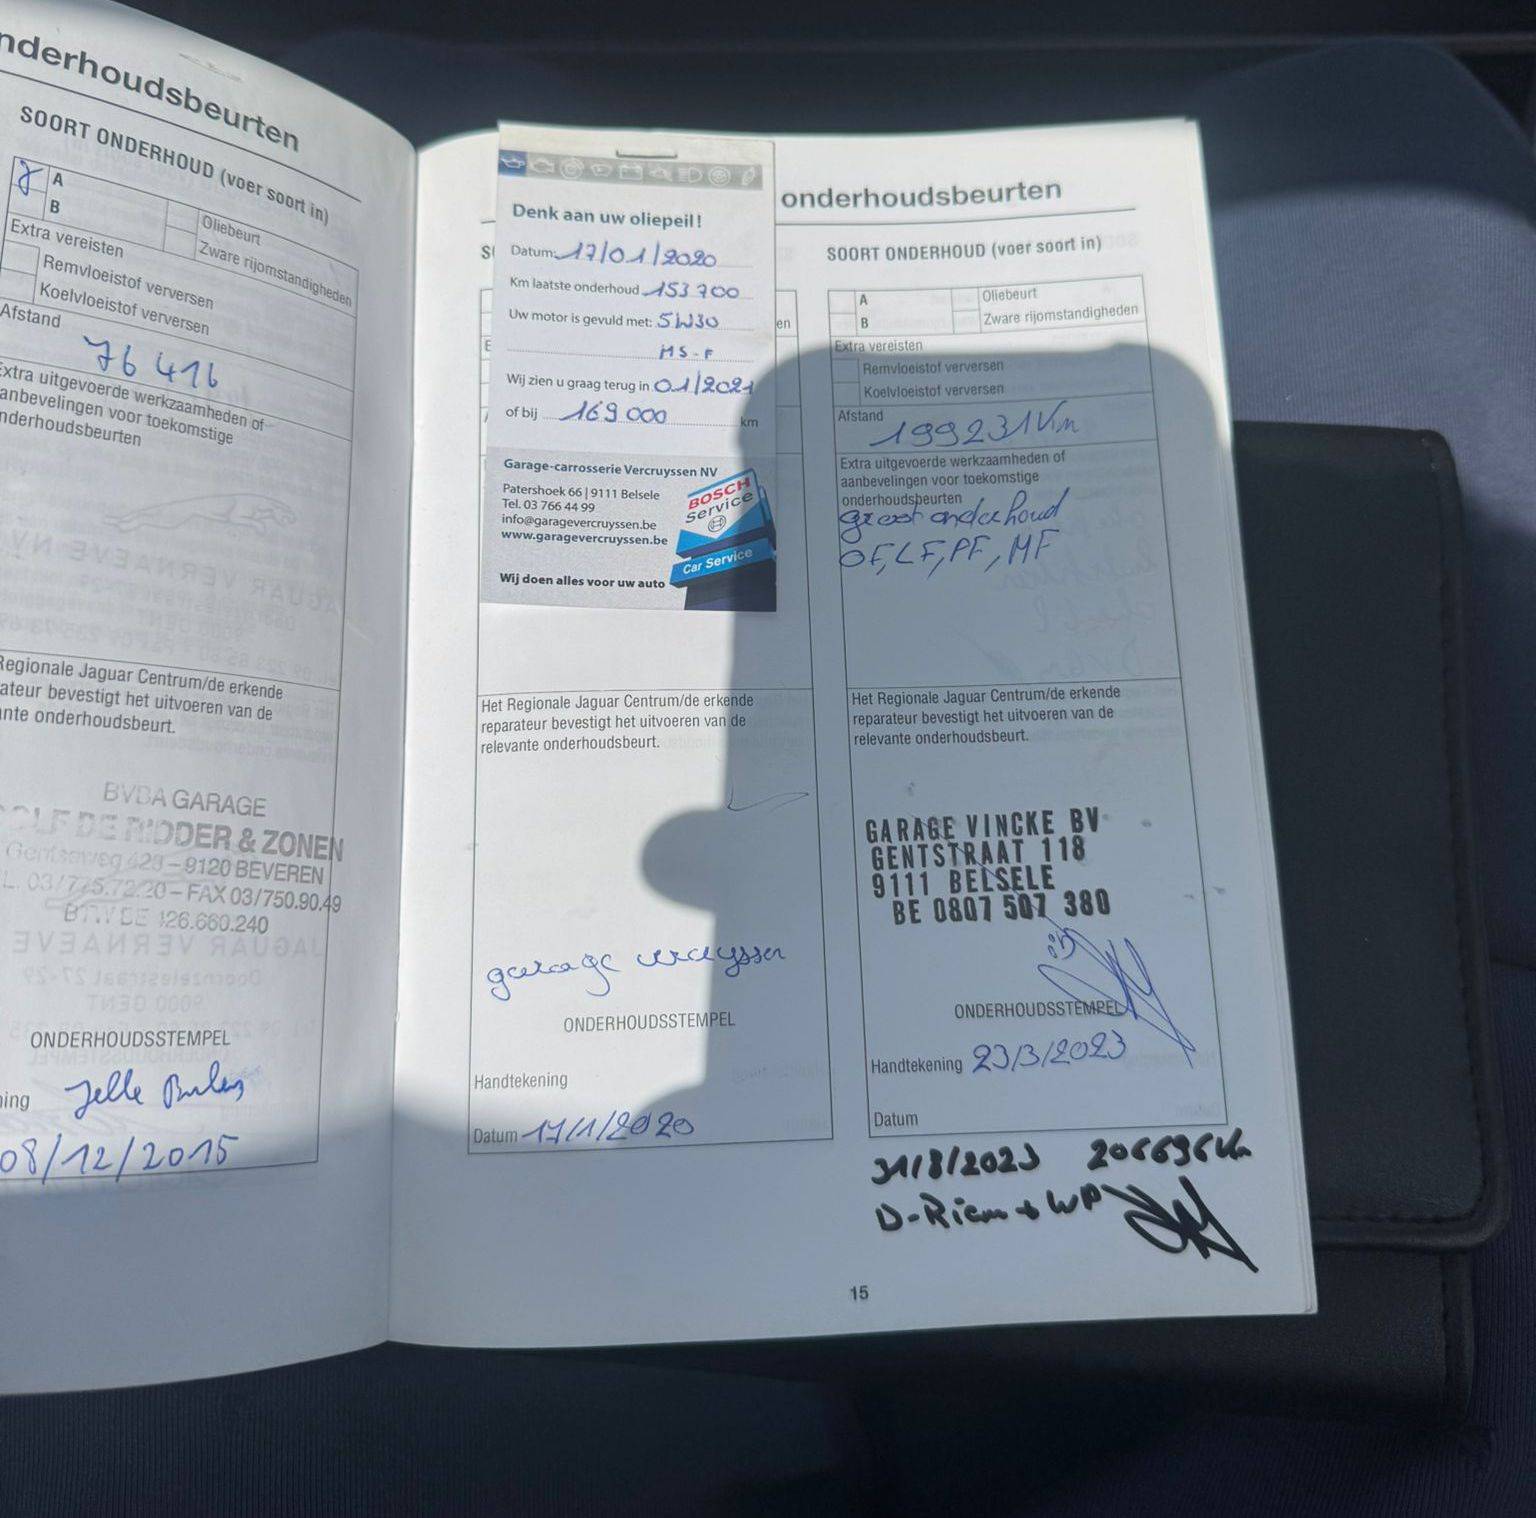 nderhoudsbeurten
SOORT ONDERHOUD (voer soort in)
A
B
Oliebeurt
Zware rijomstandigheden
Extra vereisten
Remvloeistof verversen
Koelvloeistof verversen
Afstand
76 416
xtra uitgevoerde werkzaamheden of
anbevelingen voor toekomstige
nderhoudsbeurten
Regionale Jaguar Centrum/de erkende
ateur bevestigt het uitvoeren van de
ante onderhoudsbeurt.
BVBA GARAGE
OLF DE RIDDER & ZONEN
Gentseweg 423 – 9120 BEVEREN
L. 03/775.72.20 – FAX 03/750.90.49
BTW BE 426.660.240
ONDERHOUDSSTEMPEL
ning Jelle
08/12/2015
Denk aan uw oliepeil!
Datum: 17/01/2020
Km laatste onderhoud 153 700
Uw motor is gevuld met: 5W30
MS-F
Wij zien u graag terug in 01/2021
of bij 169 000 km
Garage-carrosserie Vercruyssen NV
Patershoek 66 | 9111 Belsele
Tel. 03 766 44 99
info@garagevercruyssen.be
www.garagevercruyssen.be
Wij doen alles voor uw auto
BOSCH
Service
Car Service
en
Het Regionale Jaguar Centrum/de erkende
reparateur bevestigt het uitvoeren van de
relevante onderhoudsbeurt.
garage
ONDERHOUDSSTEMPEL
Handtekening
Datum 17/1/2020
onderhoudsbeurten
SOORT ONDERHOUD (voer soort in)
A
B
Oliebeurt
Zware rijomstandigheden
Extra vereisten
Remvloeistof verversen
Koelvloeistof verversen
Afstand
199231 Km
Extra uitgevoerde werkzaamheden of
aanbevelingen voor toekomstige
onderhoudsbeurten
groot onderhoud
OF, LF, PF, MF
Het Regionale Jaguar Centrum/de erkende
reparateur bevestigt het uitvoeren van de
relevante onderhoudsbeurt.
GARAGE VINCKE BV
GENTSTRAAT 118
9111 BELSELE
BE 0807 507 380
ONDERHOUDSSTEMPEL
Handtekening 23/3/2023
Datum
31/8/2023 206696 Km
D-Riem + WP
15